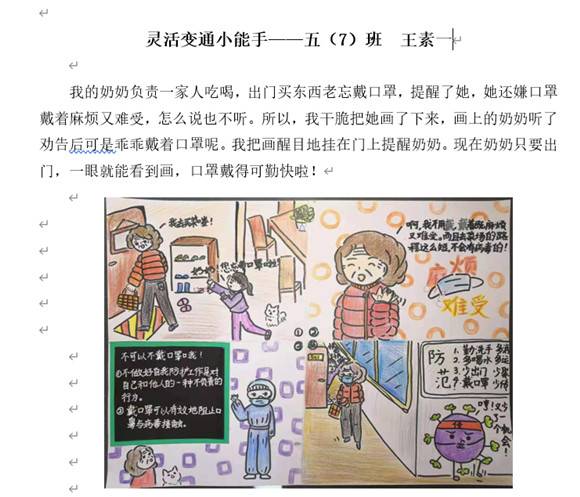 灵活变通小能手——五（7）班　王素一
我的奶奶负责一家人吃喝，出门买东西老忘戴口罩，提醒了她，她还嫌口罩
戴着麻烦又难受，怎么说也不听。所以，我干脆把她画了下来，画上的奶奶听了
劝告后可是乖乖戴着口罩呢。我把画醒目地挂在门上提醒奶奶。现在奶奶只要出
门，一眼就能看到画，口罩戴得可勤快啦！
我去买菜喽！
奶奶！您忘戴口罩啦！
啊，我不用戴，戴着麻烦
又难受。而且去菜场的路
程这么短，不会有病毒的！
麻烦
难受
① ②
不可以不戴口罩哦！
①不做好自我防护工作是对
自己和他人的一种不负责的
行为。
②戴口罩可以有效地阻止口
鼻与病毒接触。
防范
1.勤洗手
2.多喝水
3.少出门
4.戴口罩
哼！又少
了一
个机
会！